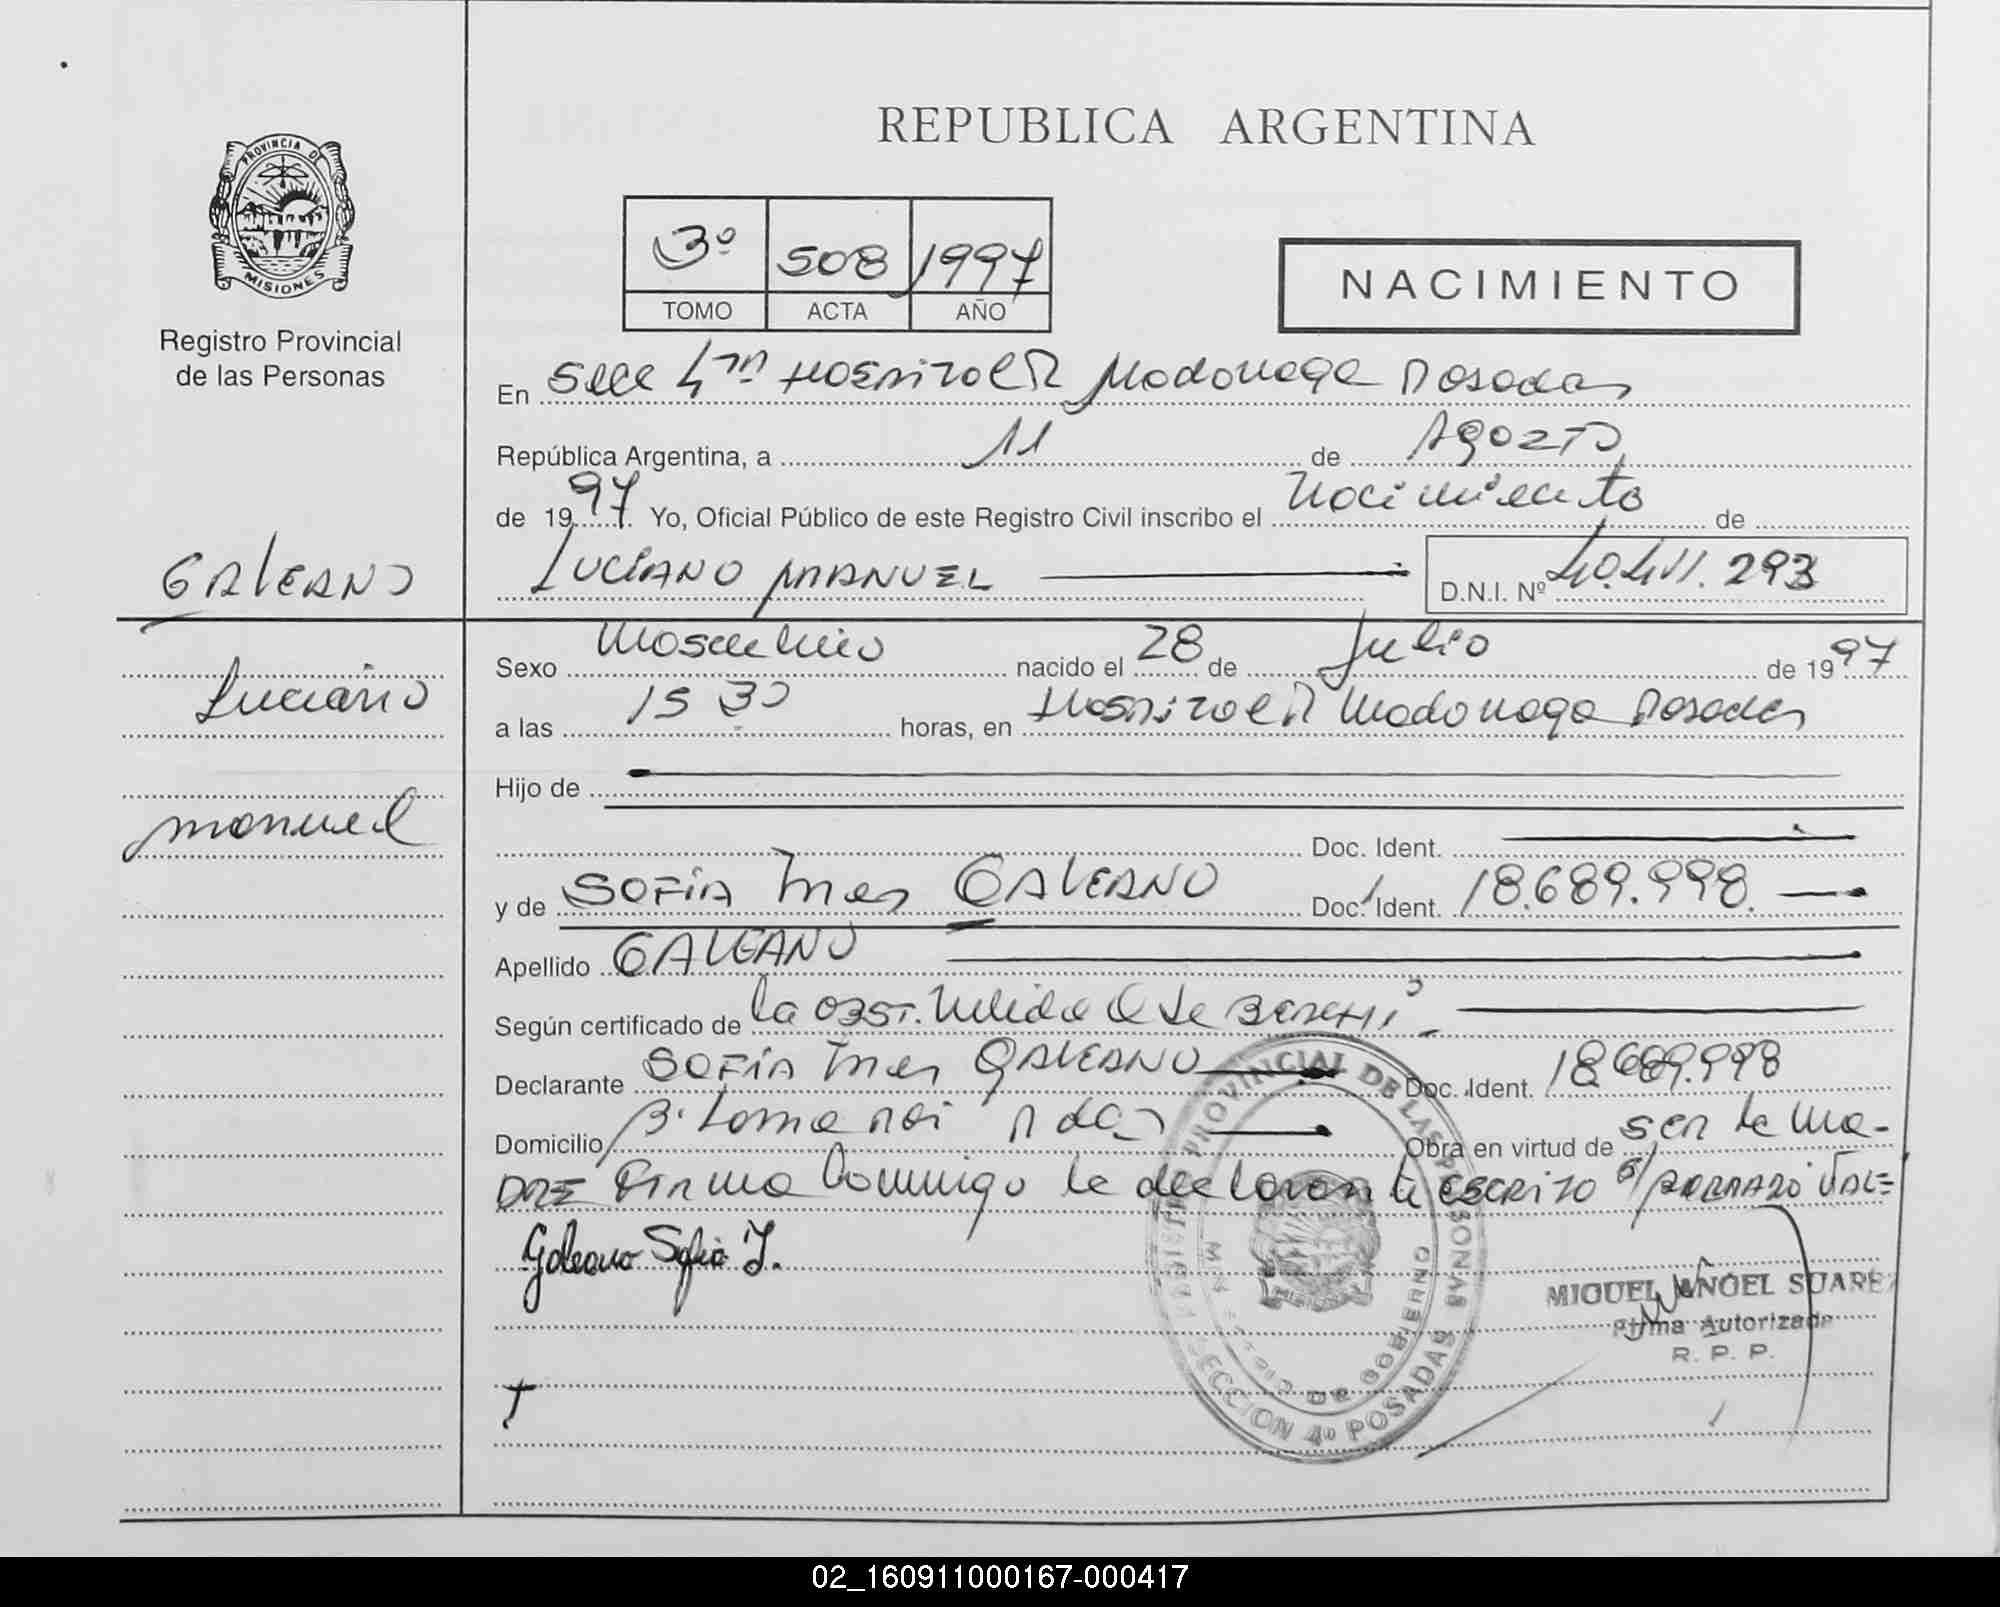 REPUBLICA ARGENTINA
PROVINCIA DE
MISIONES
Registro Provincial
de las Personas
3º 508 1997
TOMO ACTA AÑO
NACIMIENTO
En Secc 4ta Hospital R Madariaga Posadas
República Argentina, a 11 de Agosto
de 1997 Yo, Oficial Público de este Registro Civil inscribo el Nacimiento de
GALEANO
LUCIANO MANUEL D.N.I. Nº 40.411.293
Luciano
Manuel
Sexo Masculino nacido el 28 de Julio de 1997
a las 15 30 horas, en Hospital R Madariaga Posadas
Hijo de
Doc. Ident.
y de SOFÍA Ines GALEANO Doc. Ident. 18.689.998
Apellido GALEANO
Según certificado de la OBST. Nelida
Declarante SOFÍA Ines GALEANO Doc. Ident. 18.689.998
Domicilio B. Loma Poi Pdas Obra en virtud de ser la ma-
DRE Firma Conmigo la declarante ESCRITO S/BORRADO VALE
Galeano Sofia I.
MIGUEL ANGEL SUAREZ
Firma Autorizada
R. P. P.
REGISTRO PROVINCIAL DE LAS PERSONAS
SECCION 4º POSADAS
MINISTERIO DE GOBIERNO
02_160911000167-000417